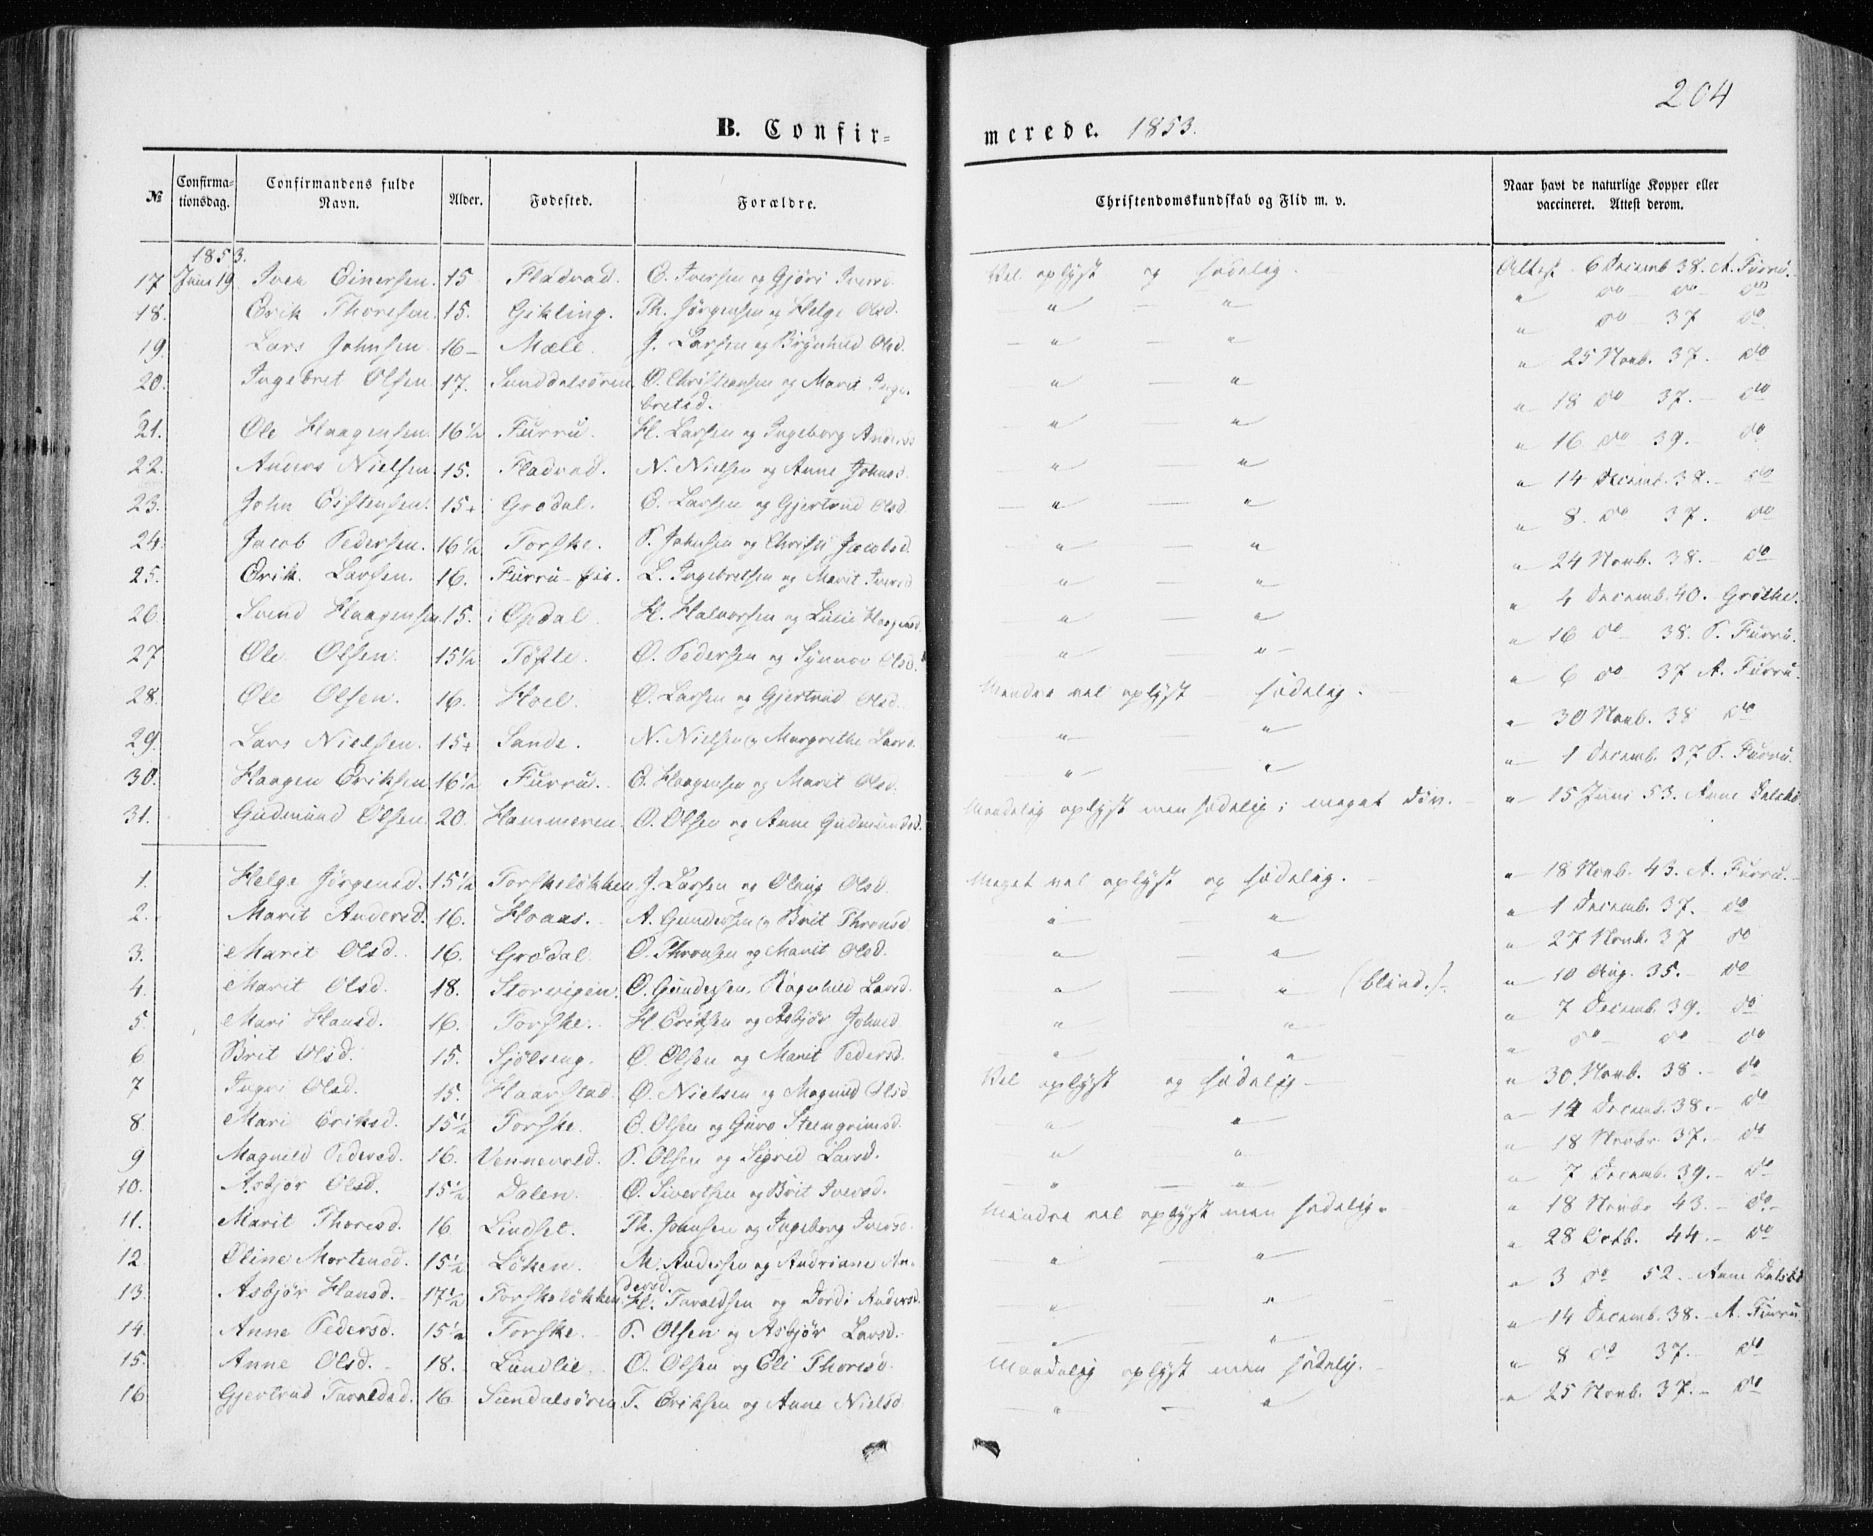 204
B. Confir- merede. 1853.
№ Confirma-tionsdag. Confirmandens fulde Navn. Alder. Fødested. Forældre. Christendomskundskab og Flid m. v. Naar havt de naturlige Kopper eller vaccineret. Attest derom.
1853.
17 Juni 19 Iver Einersen 15 Fladvad. E. Iversen og Gjøri Iversd. Vel oplyst og sædelig. Attest 6 Decemb 38. A. Furru.
18. Erik Thoresen. 15. Gikling. Th. Jørgensen og Helge Olsd. " — " " do — do — do
19. Lars Johnsen 16– Mæle. J. Larsen og Brynhild Olsd. — " — " " do — 37 do
20. Ingebret Olsen 17. Sunddalsøren O. Christiansen og Marit Inge- " — " " 25 Novb. 37. do
bretsd.
21. Ole Haagensen. 16½ Furru. H. Larsen og Ingeborg Andersd " — " " 18 do 37. – do
22. Anders Nielsen. 15. Fladvad. N. Nielsen og Anne Johnsd. " — " " 16 do 39. – do
23. John Eistensen. 15+ Grødal. E. Larsen og Gjertrud Olsd. — " — " " 14 Decemb. 38. – do
24. Jacob Pedersen. 16½ Torske. P. Johnsen og Christi Jacobsd. — " — " " 8. do 37. do
25. Erik Larsen. 16. Furru-eie. L. Ingebretsen og Marit Iversd " — " " 24 Novb. 38. – do
26 Svend Haagensen 15. i Opdal. H. Halvorsen og Haagensd. — " — " " 4 Decemb. 40. Grøthe.
27 Ole Olsen. 15½ Tøfte. O. Pedersen og Synnøv Olsd. " — " " 16 do 38. P. Furru.
28. Ole Olsen. 16. Hoel. O. Larsen og Gjertrud Olsd. Mindre vel oplyst – sædelig. " 6 do 37 A. Furru.
29. Lars Nielsen. 15+ Sande. N. Nielsen og Margrethe Larsd. " — " " 30 Novb. 38 do
30. Haagen Eriksen 16½ Furru. E. Haagensen og Marit Olsd. — " — " " 1 Decemb. 37 P. Furru.
31. Gudmund Olsen 20. Hammeren. O. Olsen og Anne Gudmundsd. Maadelig oplyst men sædelig; meget døv. " 15 Juni 53. Anne
1. Helge Jørgensd. 15½ Torskeløkken J. Larsen og Olaug Olsd. Meget vel oplyst og sædelig. " 18 Novb. 43. A. Furru.
2. Marit Andersd. 16. Hoaas. A. Gundersen og Brit Thronsd " — " " 1 Decemb. 37. – do
3. Marit Olsd. 16. Grødal. O. Thronsen og Marit Olsd. " — " " 27 Novb. 37 do
4. Marit Olsd. 18. Storvigen. O. Gundersen, Ragnhild Larsd. " — " (blind.) " 10 Aug. 35. – do
5. Mari Hansd. 16. Torske. H. Eriksen og Asbjør Johnsd " — " " 7 Decemb. 39. – do
6 Brit Olsd. 15. Sjølseng. O. Olsen og Marit Pedersd. " — " " do — do — do
7 Ingri Olsd. 15. Haarstad. O. Nielsen og Magnild Olsd Vel oplyst og sædelig " 30. Novb. 38. – do
8 Mari Eriksd. 15½ Torske. E. Olsen og Guro Steengrimsd. " — " " 14 Decemb. 38. – do
9 Magnild Pedersd. 16. Vennevold. P. Olsen og Sigrid Larsd. " — " " 18 Novbr. 37. – do
10. Asbjør Olsd. 15½ Dalen. O. Sivertsen og Brit Iversd. — " — " " 7 Decemb. 39. – do
11. Marit Thoresd. 16 Lindset. Th. Johnsen og Ingeborg Iversd. Mindre vel oplyst men sædelig. " 18 Novbr 43. – do
12 Oline Mortensd. 15½ Løken. M. Andersen og Andriane An- — " — " " 28 Octb. 44. – do
dersd.
13. Asbjør Hansd. 17½ Torskeløkken H. Taraldsen og Dordi Andersd. " — " " 3 do 52. Anne
14. Anne Pedersd. 15½ Torske. P. Olsen og Asbjør Larsd. " — " " 14 Decemb. 38. – A. Furru
15. Anne Olsd. 18. Lundlie. O. Olsen og Eli Thoresd. Maadelig oplyst men sædelig. " 8 do 37. – do
16. Gjertrud Taraldsd. 16 Sundalsøren T. Eriksen og Anne Nielsd — " — " " 25 Novb. 37. – do